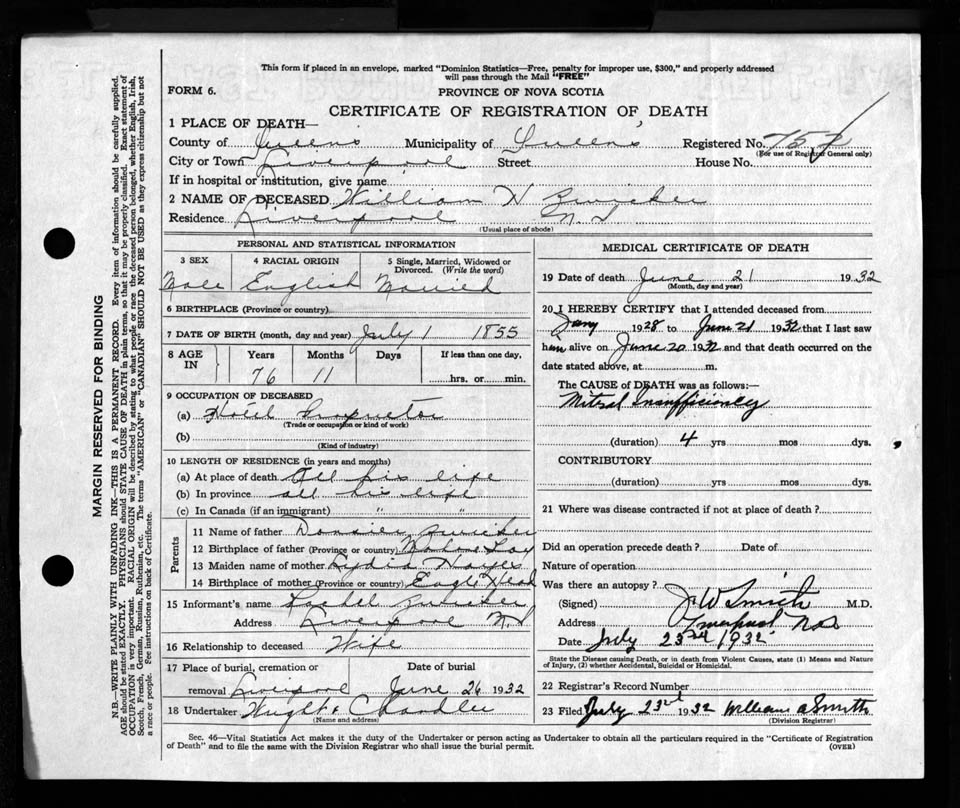 This form if placed in an envelope, marked "Dominion Statistics—Free, penalty for improper use, $300," and properly addressed
will pass through the Mail "FREE"
FORM 6.
PROVINCE OF NOVA SCOTIA
CERTIFICATE OF REGISTRATION OF DEATH
1 PLACE OF DEATH—
County of Queens Municipality of Queens Registered No. 757
(For use of Registrar General only)
City or Town Liverpool Street House No.
If in hospital or institution, give name
2 NAME OF DECEASED William H Zwicker
Residence Liverpool N.S
(Usual place of abode)
PERSONAL AND STATISTICAL INFORMATION
3 SEX 4 RACIAL ORIGIN 5 Single, Married, Widowed or
Divorced. (Write the word)
Male English Married
6 BIRTHPLACE (Province or country)
7 DATE OF BIRTH (month, day and year) July 1 1855
8 AGE IN Years Months Days If less than one day,
76 11 hrs. or min.
9 OCCUPATION OF DECEASED
(a) Hotel Proprietor
(Trade or occupation or kind of work)
(b)
(Kind of industry)
10 LENGTH OF RESIDENCE (in years and months)
(a) At place of death All his life
(b) In province all his life
(c) In Canada (if an immigrant) " "
Parents
11 Name of father Zwicker
12 Birthplace of father (Province or country) Mahone Bay
13 Maiden name of mother Lydia Hayes
14 Birthplace of mother (Province or country) Eagle Head
15 Informant's name Rachel Zwicker
Address Liverpool N.S
16 Relationship to deceased Wife
17 Place of burial, cremation or Date of burial
removal Liverpool June 26 1932
18 Undertaker Wright & Chandler
(Name and address)
MEDICAL CERTIFICATE OF DEATH
19 Date of death June 21 1932
(Month, day and year)
20 I HEREBY CERTIFY that I attended deceased from
Jany 1928 to June 21 1932 that I last saw
him alive on June 20 1932 and that death occurred on the
date stated above, at m.
The CAUSE of DEATH was as follows:—
Mitral Insufficiency
(duration) 4 yrs mos dys.
CONTRIBUTORY
(duration) yrs mos dys.
21 Where was disease contracted if not at place of death?
Did an operation precede death? Date of
Nature of operation
Was there an autopsy?
(Signed) J W Smith M.D.
Address Liverpool N.S.
Date July 23rd 1932
State the Disease causing Death, or in death from Violent Causes, state (1) Means and Nature
of Injury, (2) whether Accidental, Suicidal or Homicidal.
22 Registrar's Record Number
23 Filed July 23rd 1932 William A Smith
(Division Registrar)
Sec. 46—Vital Statistics Act makes it the duty of the Undertaker or person acting as Undertaker to obtain all the particulars required in the "Certificate of Registration
of Death" and to file the same with the Division Registrar who shall issue the burial permit.
(OVER)
MARGIN RESERVED FOR BINDING
N.B.—WRITE PLAINLY WITH UNFADING INK—THIS IS A PERMANENT RECORD. Every item of information should be carefully supplied.
AGE should be stated EXACTLY. PHYSICIANS should STATE CAUSE OF DEATH in plain terms, so that it may be properly classified. Exact statement of
OCCUPATION is very important. RACIAL ORIGIN will be described by stating to what people or race the deceased person belonged, whether English, Irish,
Scotch, French, German, Russian, Ruthenian, etc. The terms "AMERICAN" or "CANADIAN" SHOULD NOT BE USED as they express citizenship but not
a race or people. See instructions on back of Certificate.